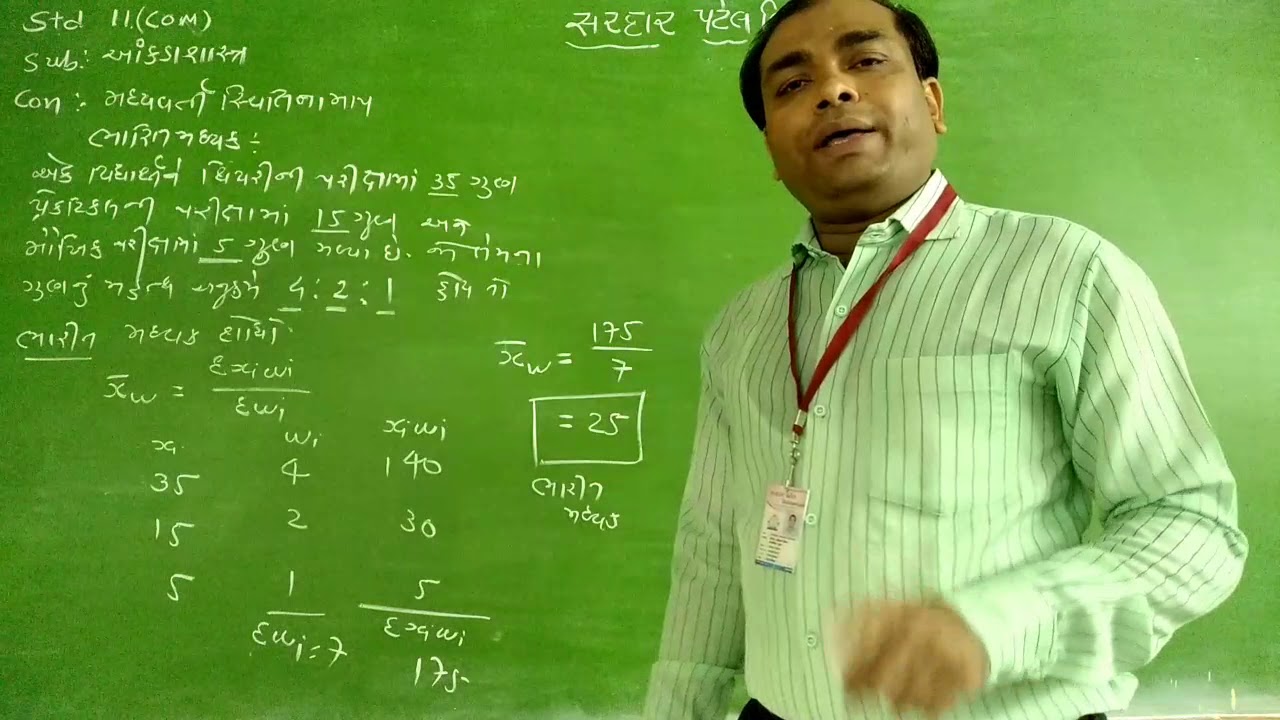 Std 11.(COM)
સરદાર પટેલ
Sub: આંકડાશાસ્ત્ર
Con: મધ્યવર્તી સ્થિતિના માપ
ભારિત મધ્યક:
એક વિધાર્થીને થિયરીની પરીક્ષામાં 35 ગુણ
પ્રેકટિકલની પરીક્ષામાં 15 ગુણ અને
મૌખિક પરીક્ષામાં 5 ગુણ મળ્યા છે. જો તેમના
ગુણનું મહત્વ અનુક્રમે 4:2:1 હોય તો
ભારીત મધ્યક શોધો
x̄w = Σxiwi / Σwi
xi wi xiwi
35 4 140
15 2 30
5 1 5
Σwi = 7 Σxiwi
175
x̄w = 175 / 7
= 25
ભારીત
મધ્યક